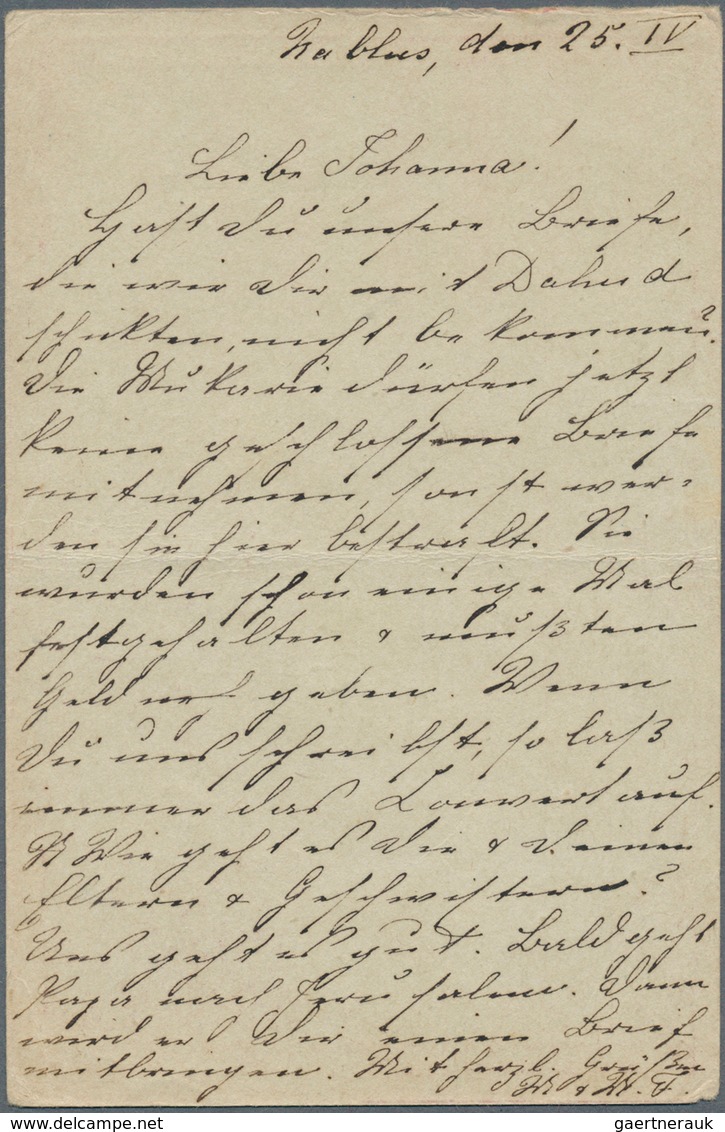 Nablus, den 25. IV
Liebe Johanna!
Hast Du unsere Briefe,
die wir Dir mit Dahud
schickten, nicht bekommen?
Die Mukarie dürfen jetzt
keine geschlossene Briefe
mitnehmen, sonst wer-
den sie hier bestraft. Sie
wurden schon einige Mal
festgehalten & mußten
Geld geben. Wenn
Du uns schreibst, so laß
immer das Couvert auf.
Wie geht es Dir & Deinen
Eltern & Geschwistern?
Uns geht es gut. Bald geht
Papa nach Jerusalem. Dann
wird er Dir einen Brief
mitbringen. Mit herzl. Grüßen
M & M. F.
gaertnerauk